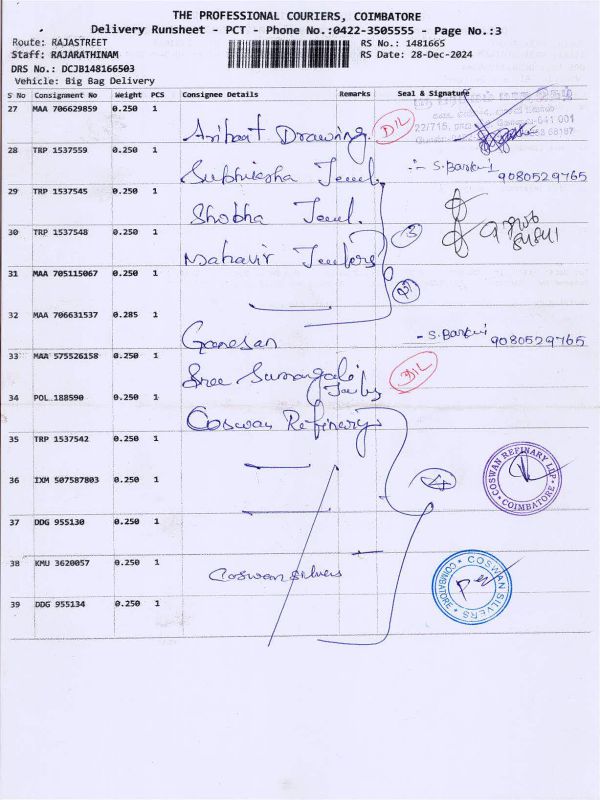 THE PROFESSIONAL COURIERS, COIMBATORE
Delivery Runsheet - PCT - Phone No.:0422-3505555 - Page No.:3
Route: RAJASTREET RS No.: 1481665
Staff: RAJARATHINAM RS Date: 28-Dec-2024
DRS No.: DCJB148166503
Vehicle: Big Bag Delivery
S No Consignment No Weight PCS Consignee Details Remarks Seal & Signature
27 MAA 706629859 0.250 1 Arihant Drawing. D/L
22/715, 641 001
28 TRP 1537559 0.250 1 Subhiksha Jewel. :- S. Barkavi 9080529765
29 TRP 1537545 0.250 1 Shobha Jewel.
30 TRP 1537548 0.250 1 Mahavir Jewlers 3
31 MAA 705115067 0.250 1
32 MAA 706631537 0.285 1 Ganesan - S. Barkavi 9080529765
33 MAA 575526158 0.250 1 Sree Sumangali D/L
34 POL 188590 0.250 1 Coswan Refinery
35 TRP 1537542 0.250 1
36 IXM 507587803 0.250 1
COSWAN REFINERY LLP
COIMBATORE
37 DDG 955130 0.250 1
38 KMU 3620057 0.250 1 Coswan Silvers
COSWAN SILVERS
COIMBATORE
39 DDG 955134 0.250 1